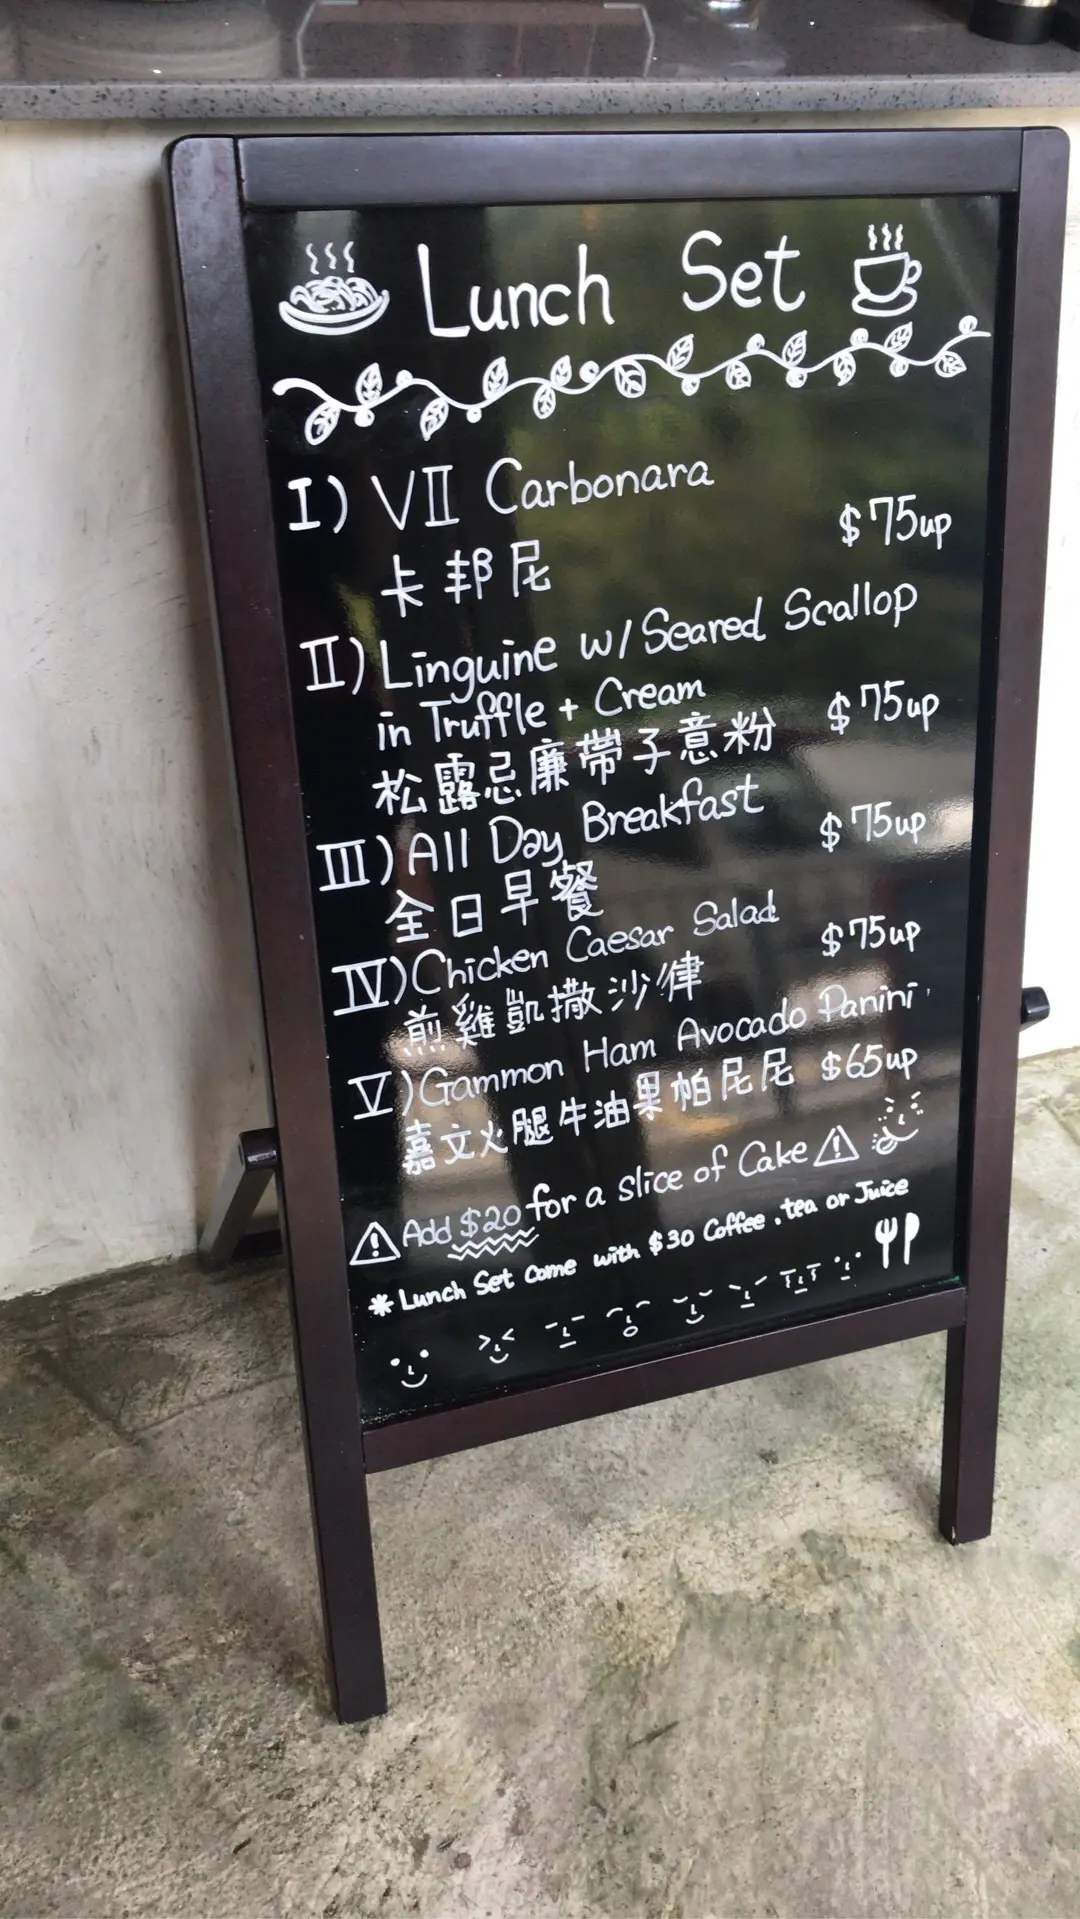 Lunch Set
I) VII Carbonara
卡邦尼 $75up
II) Linguine w/ Seared Scallop
in Truffle + Cream
松露忌廉帶子意粉 $75up
III) All Day Breakfast
全日早餐 $75up
IV) Chicken Caesar Salad
煎雞凱撒沙律 $75up
V) Gammon Ham Avocado Panini
嘉文火腿牛油果帕尼尼 $65up
Add $20 for a slice of Cake
* Lunch Set come with $30 Coffee, tea or Juice